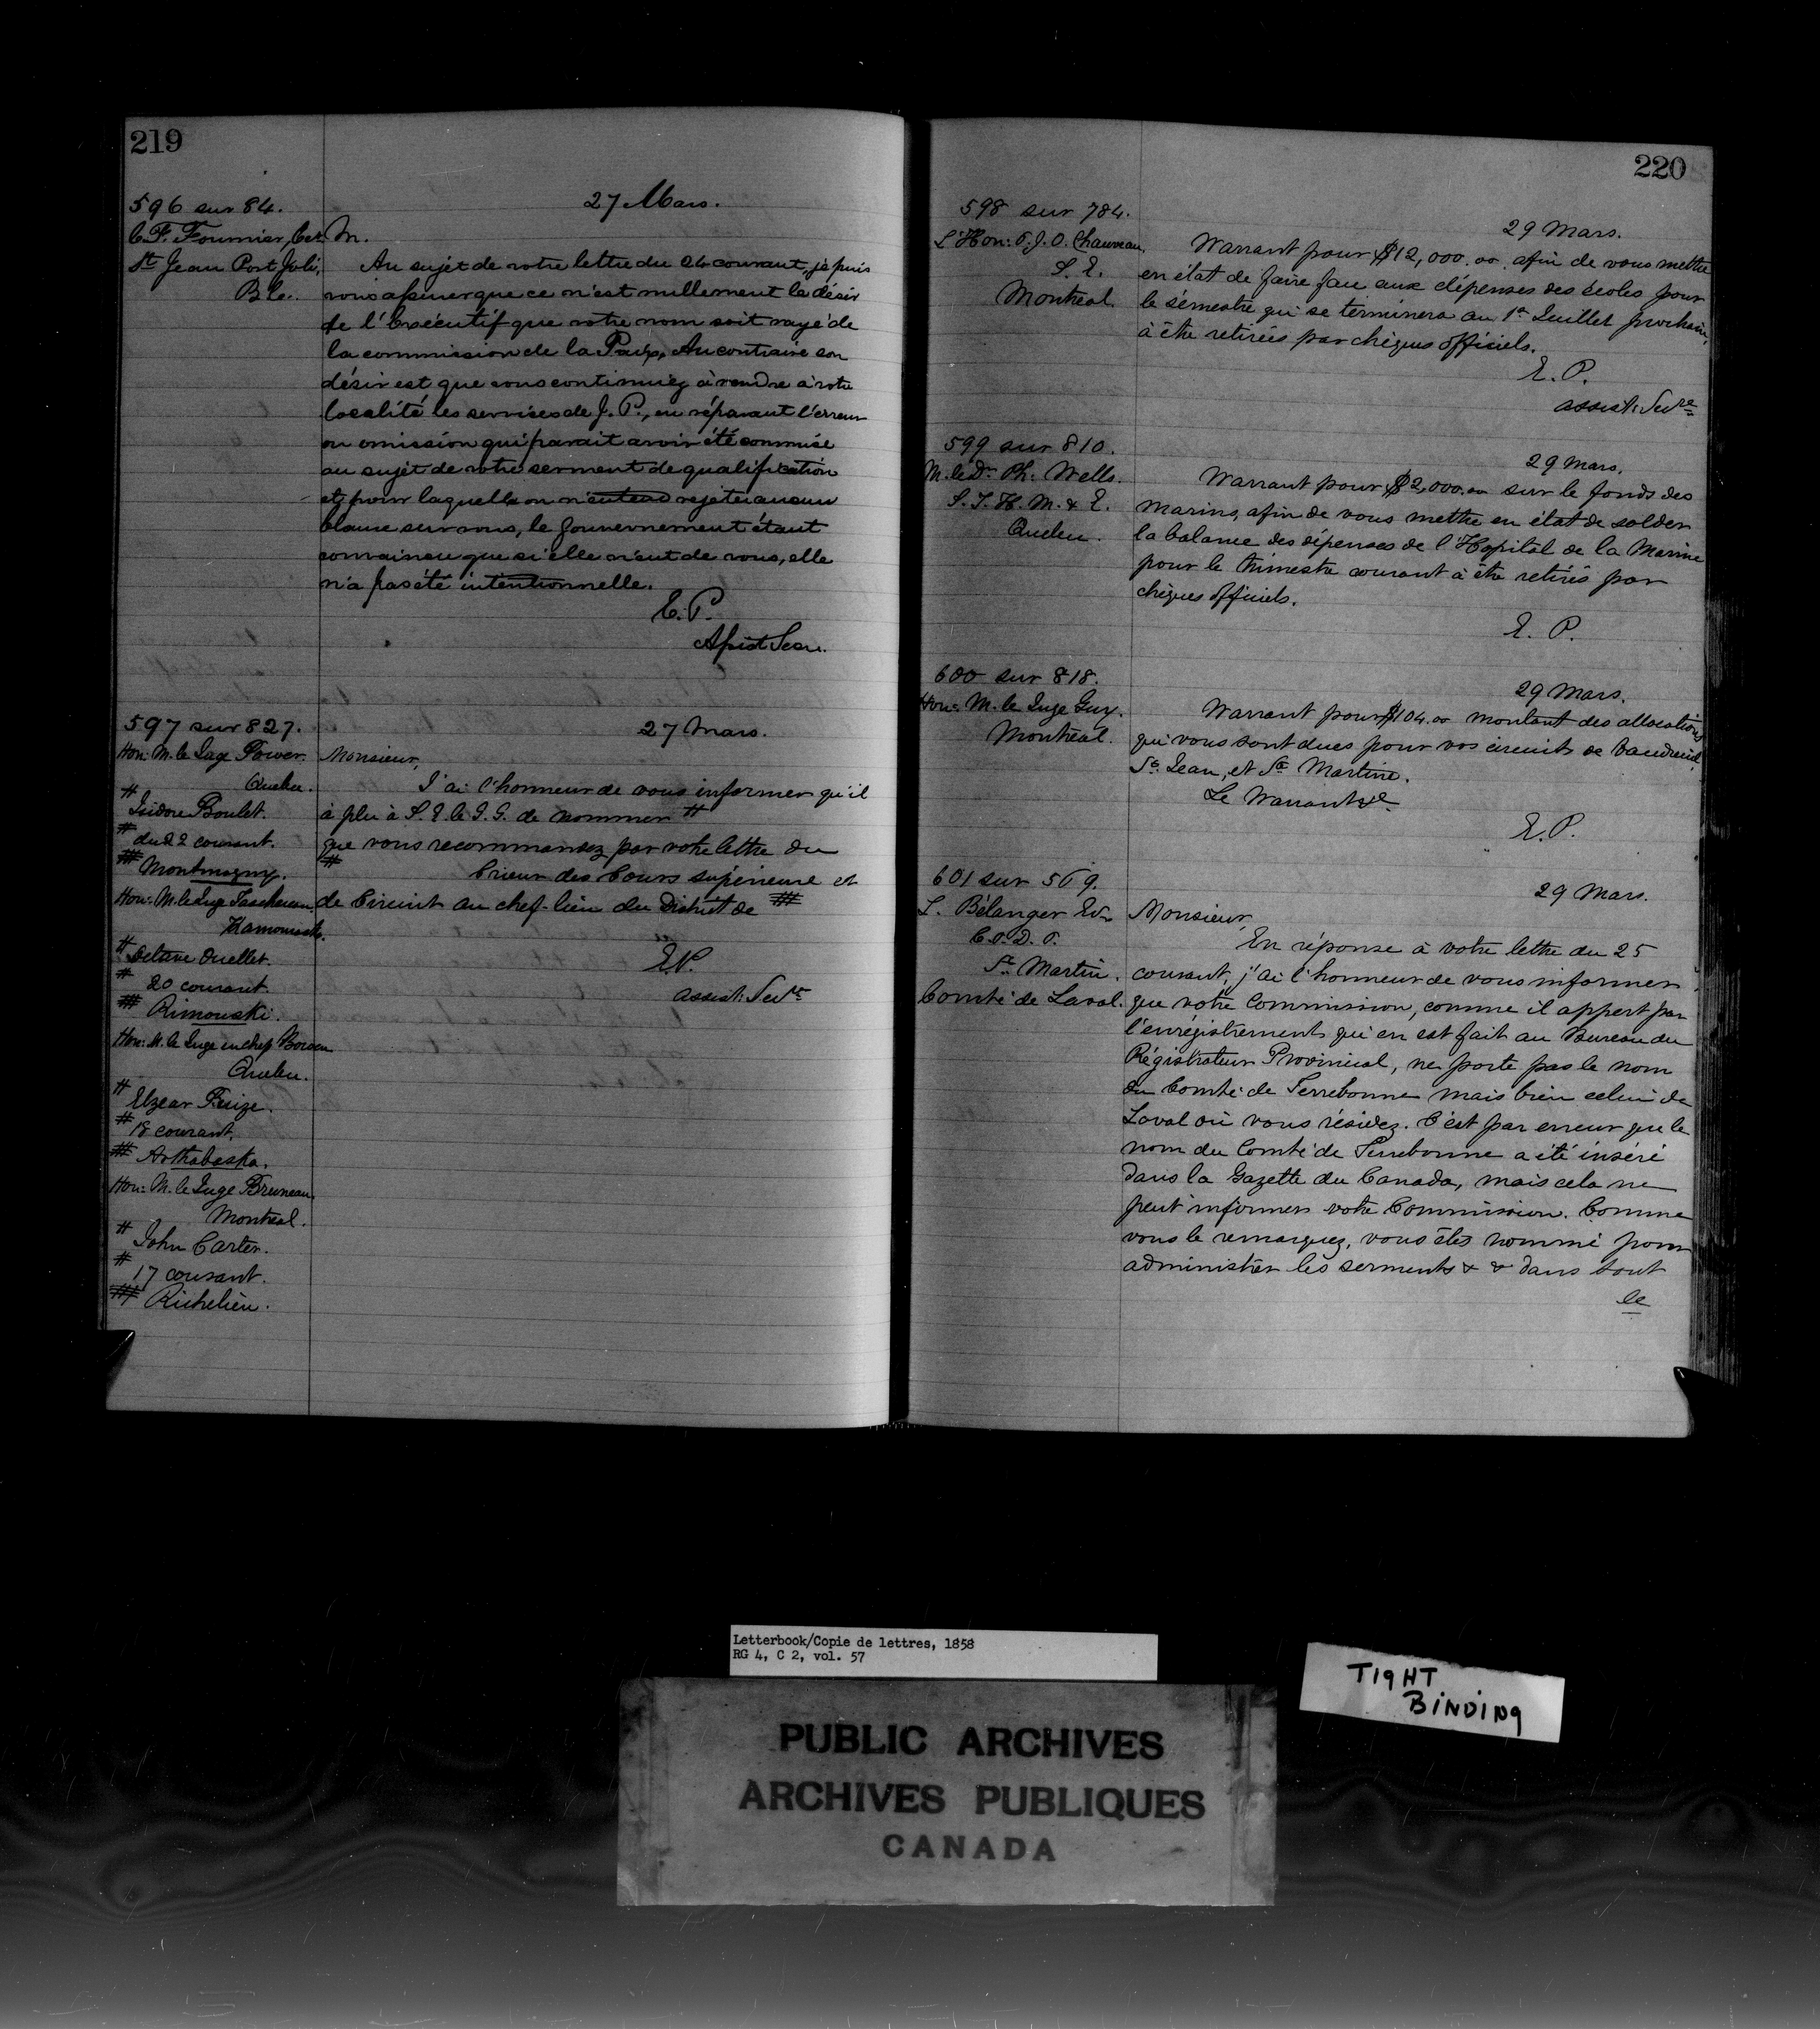 219
596 sur 84.
C. F. Fournier, Ecr.
St Jean Port Joli,
B. C.
27 Mars.
M.
Au sujet de votre lettre du 24 courant, je puis
vous assurer que ce n'est nullement le désir
de l'Exécutif que votre nom soit rayé de
la commission de la Paix, Au contraire son
désir est que vous continuiez à rendre à votre
localité les services de J. P., en réparant l'erreur
ou omission qui parait avoir été commise
au sujet de votre serment de qualification
et pour laquelle on n'entend rejeter aucun
blame sur vous, le Gouvernement étant
convaincu que si elle vient de vous, elle
n'a pas été intentionnelle.
E. P.
Assist Secr.
597 sur 827.
Hon: M. le Juge Power.
Quebec.
# Isidore Boulet.
# du 22 courant.
## Montmagny.
Hon: M. le Juge Taschereau.
Kamouraska.
# Octave Ouellet.
# 20 courant.
## Rimouski.
Hon: M. le Juge en chef Bowen
Quebec.
# Elzear
# 18 courant.
## Arthabaska.
Hon: M. le Juge Bruneau.
Montreal.
# John Carter.
# 17 courant.
## Richelieu.
27 Mars.
Monsieur,
J'ai l'honneur de vous informer qu'il
à plu à S. E. le G. G. de nommer #
que vous recommandez par votre lettre du
# Crieur des Cours supérieure et
de Circuit au chef-lieu du District de ##
E. P.
assist: Secre
220
598 sur 784.
L'Hon: P. J. O. Chauveau.
S. E.
Montreal.
29 Mars.
Warrant pour $12,000.00. afin de vous mettre
en état de faire face aux dépenses des écoles pour
le sémestre qui se terminera au 1er Juillet prochain,
à être retirées par chèques officiels.
E. P.
assist: Secre
599 sur 810.
M. le Dr Ph: Wells.
S. I. H. M. & E.
Quebec.
29 Mars.
Warrant pour $2,000.00 sur le fonds des
marins, afin de vous mettre en état de solder
la balance des dépenses de l'Hopital de la Marine
pour le trimestre courant à être retirés par
chèques officiels.
E. P.
600 sur 818.
Hon: M. le Juge Guy.
Montréal.
29 Mars.
Warrant pour $104.00 montant des allocations
qui vous sont dues pour vos circuits de Vaudreuil,
St. Jean, et Ste Martine.
Le Warrant &c
E. P.
601 sur 569.
L. Bélanger Ecr
C. P. D. P.
St Martin.
Comté de Laval.
29 Mars.
Monsieur,
En réponse à votre lettre du 25
courant, j'ai l'honneur de vous informer
que votre Commission, comme il appert par
l'enrégistrement qui en est fait au Bureau du
Régistrateur Provincial, ne porte pas le nom
du Comté de Terrebonne mais bien celui de
Laval où vous résidez. C'est par erreur que le
nom du Comté de Terrebonne a été inséré
dans la Gazette du Canada, mais cela ne
peut informer votre Commission. Comme
vous le remarquez, vous êtes nommé pour
administrer les serments & & dans tout
le
Letterbook/Copie de lettres, 1858
RG 4, C 2, vol. 57
TIGHT
BINDING
PUBLIC ARCHIVES
ARCHIVES PUBLIQUES
CANADA